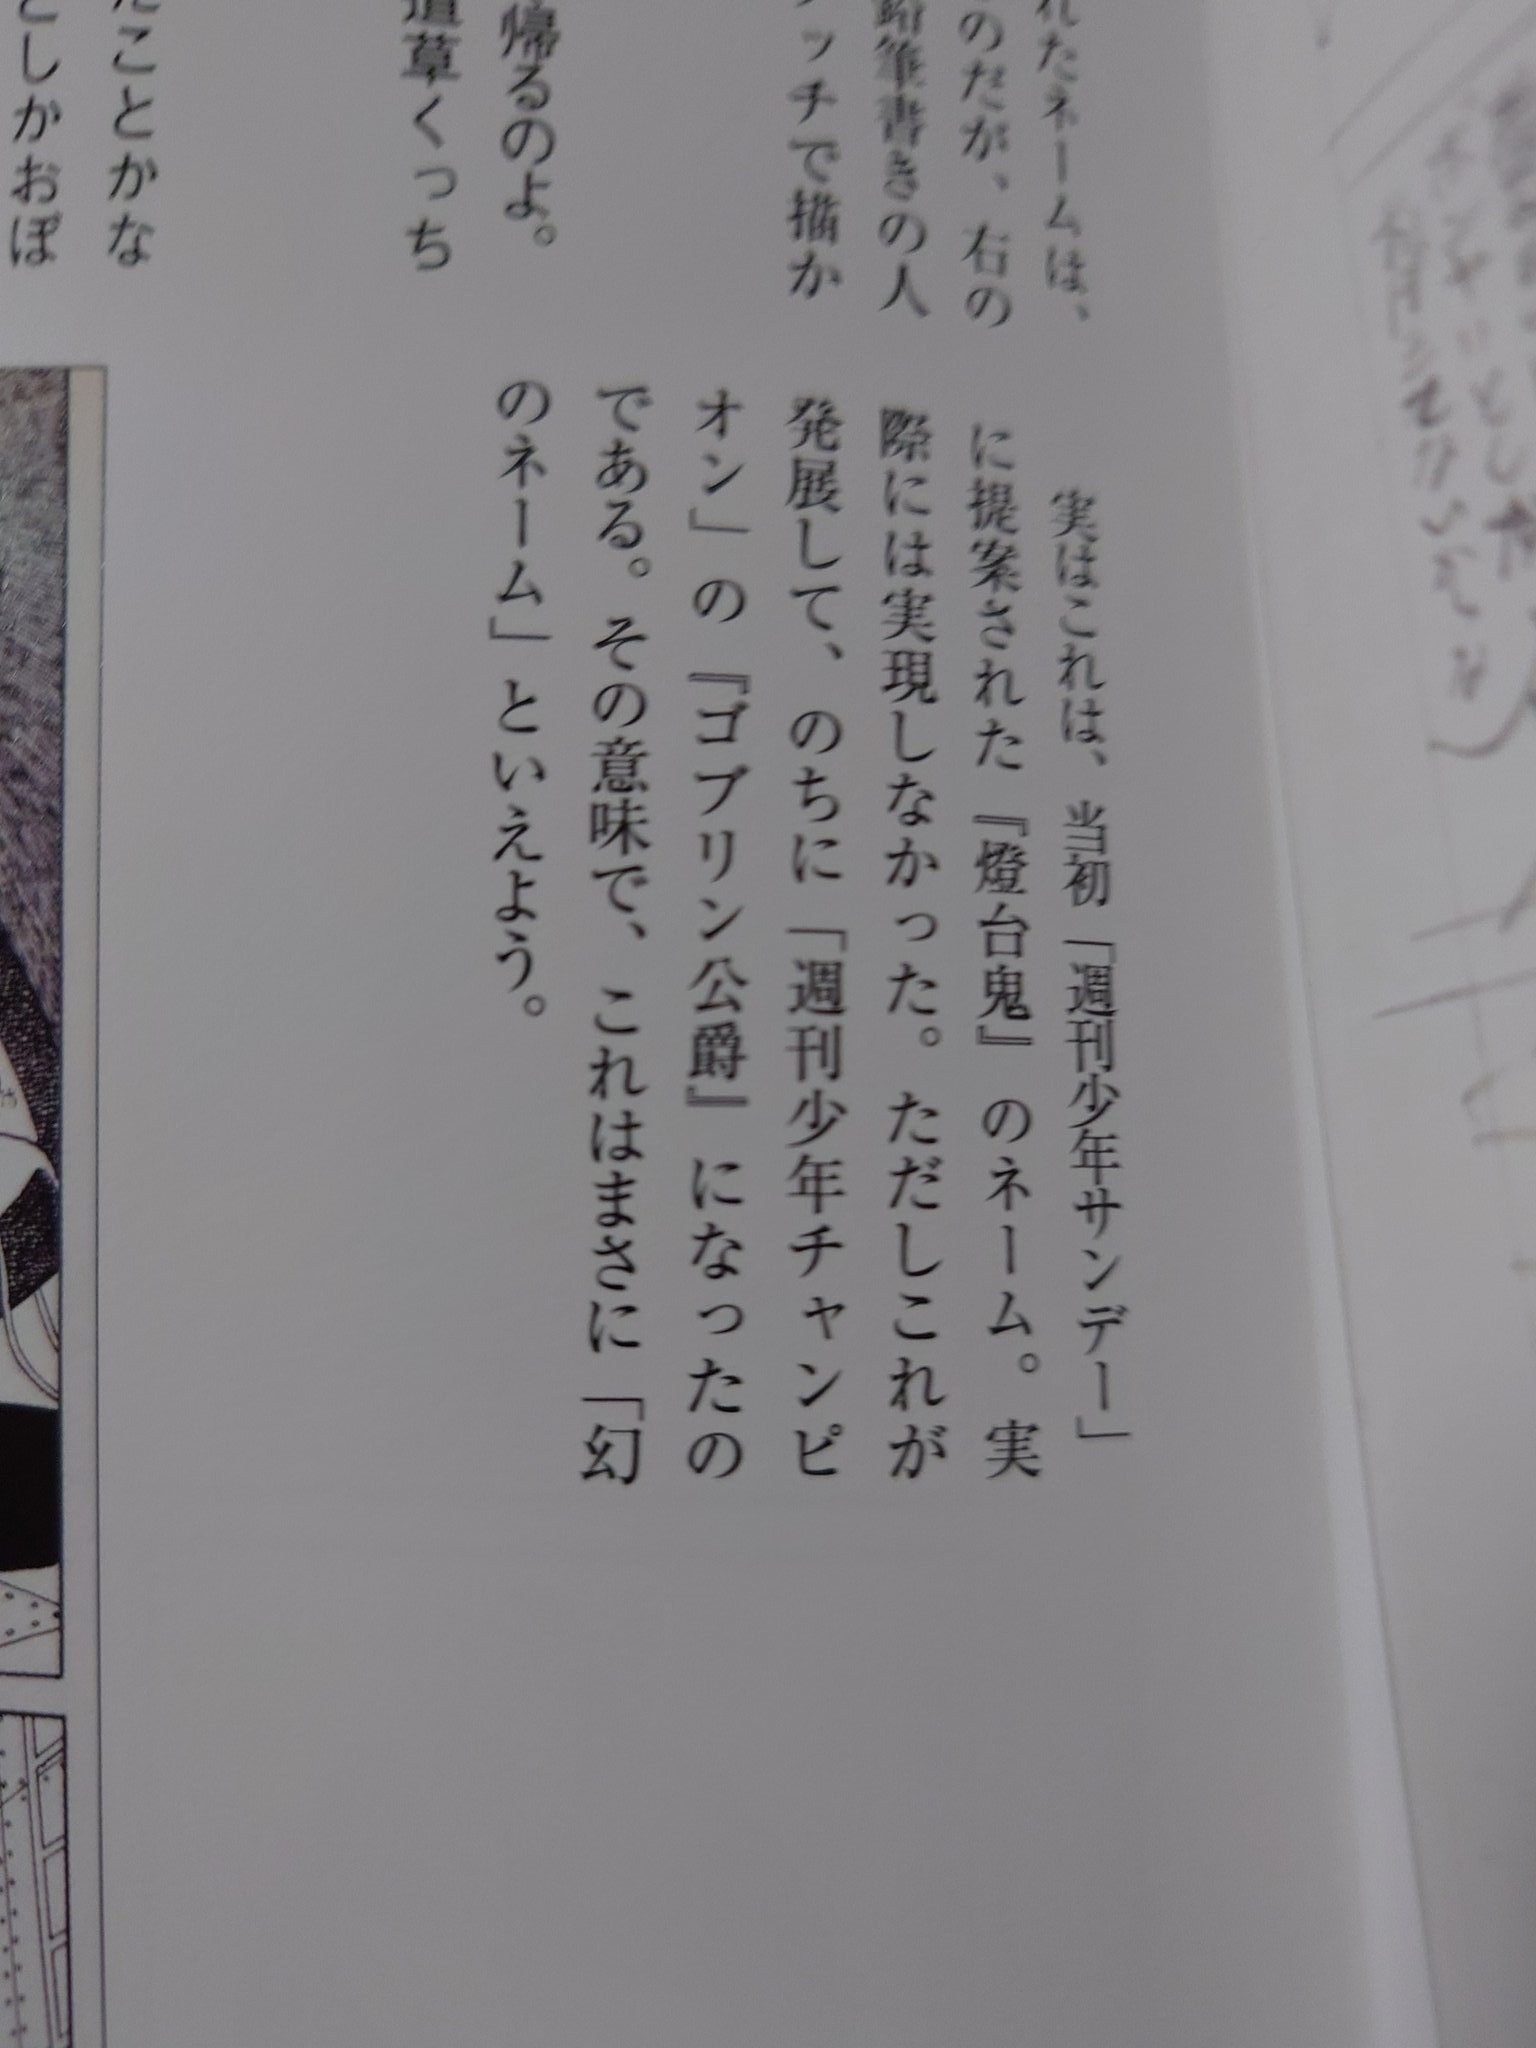 れたネームは、
のだが、右の
鉛筆書きの人
ッチで描か
帰るのよ。
道草くっち
たことかな
としかおぼ
実はこれは、当初「週刊少年サンデー」
に提案された『燈台鬼』のネーム。実
際には実現しなかった。ただしこれが
発展して、のちに「週刊少年チャンピ
オン」の『ゴブリン公爵』になったの
である。その意味で、これはまさに「幻
のネーム」といえよう。